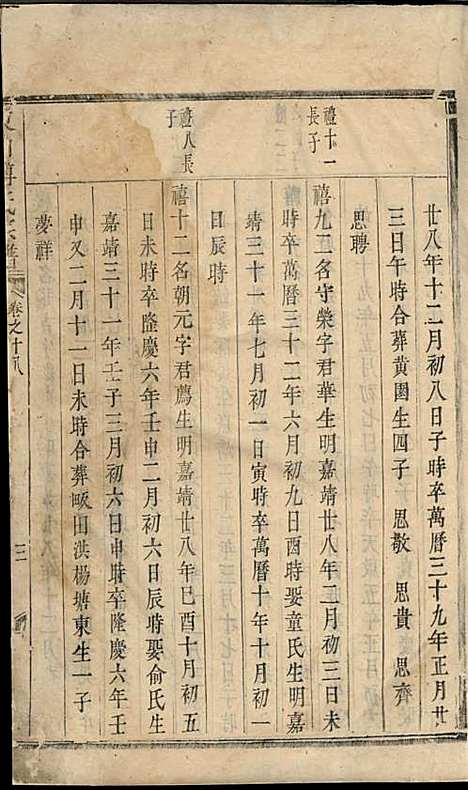 廿八年十二月初八日子時卒萬曆三十九年正月廿
三日午時合葬黄園生四子 思敬 思貴 思齊
思聘
禮十一長子
禧九二名守榮字君華生明嘉靖廿八年二月初三日未
時卒萬曆三十二年六月初九日酉時娶童氏生明嘉
靖三十一年七月初一日寅時卒萬曆十年十月初一
日辰時
禮八長子
禧十二名朝元字君薦生明嘉靖廿八年巳酉十月初五
日未時卒隆慶六年壬申二月初六日辰時娶俞氏生
嘉靖三十一年壬子三月初六日申時卒隆慶六年壬
申又二月十一日未時合葬畈田洪楊塘東生一子
夢祥
卷之十八
三